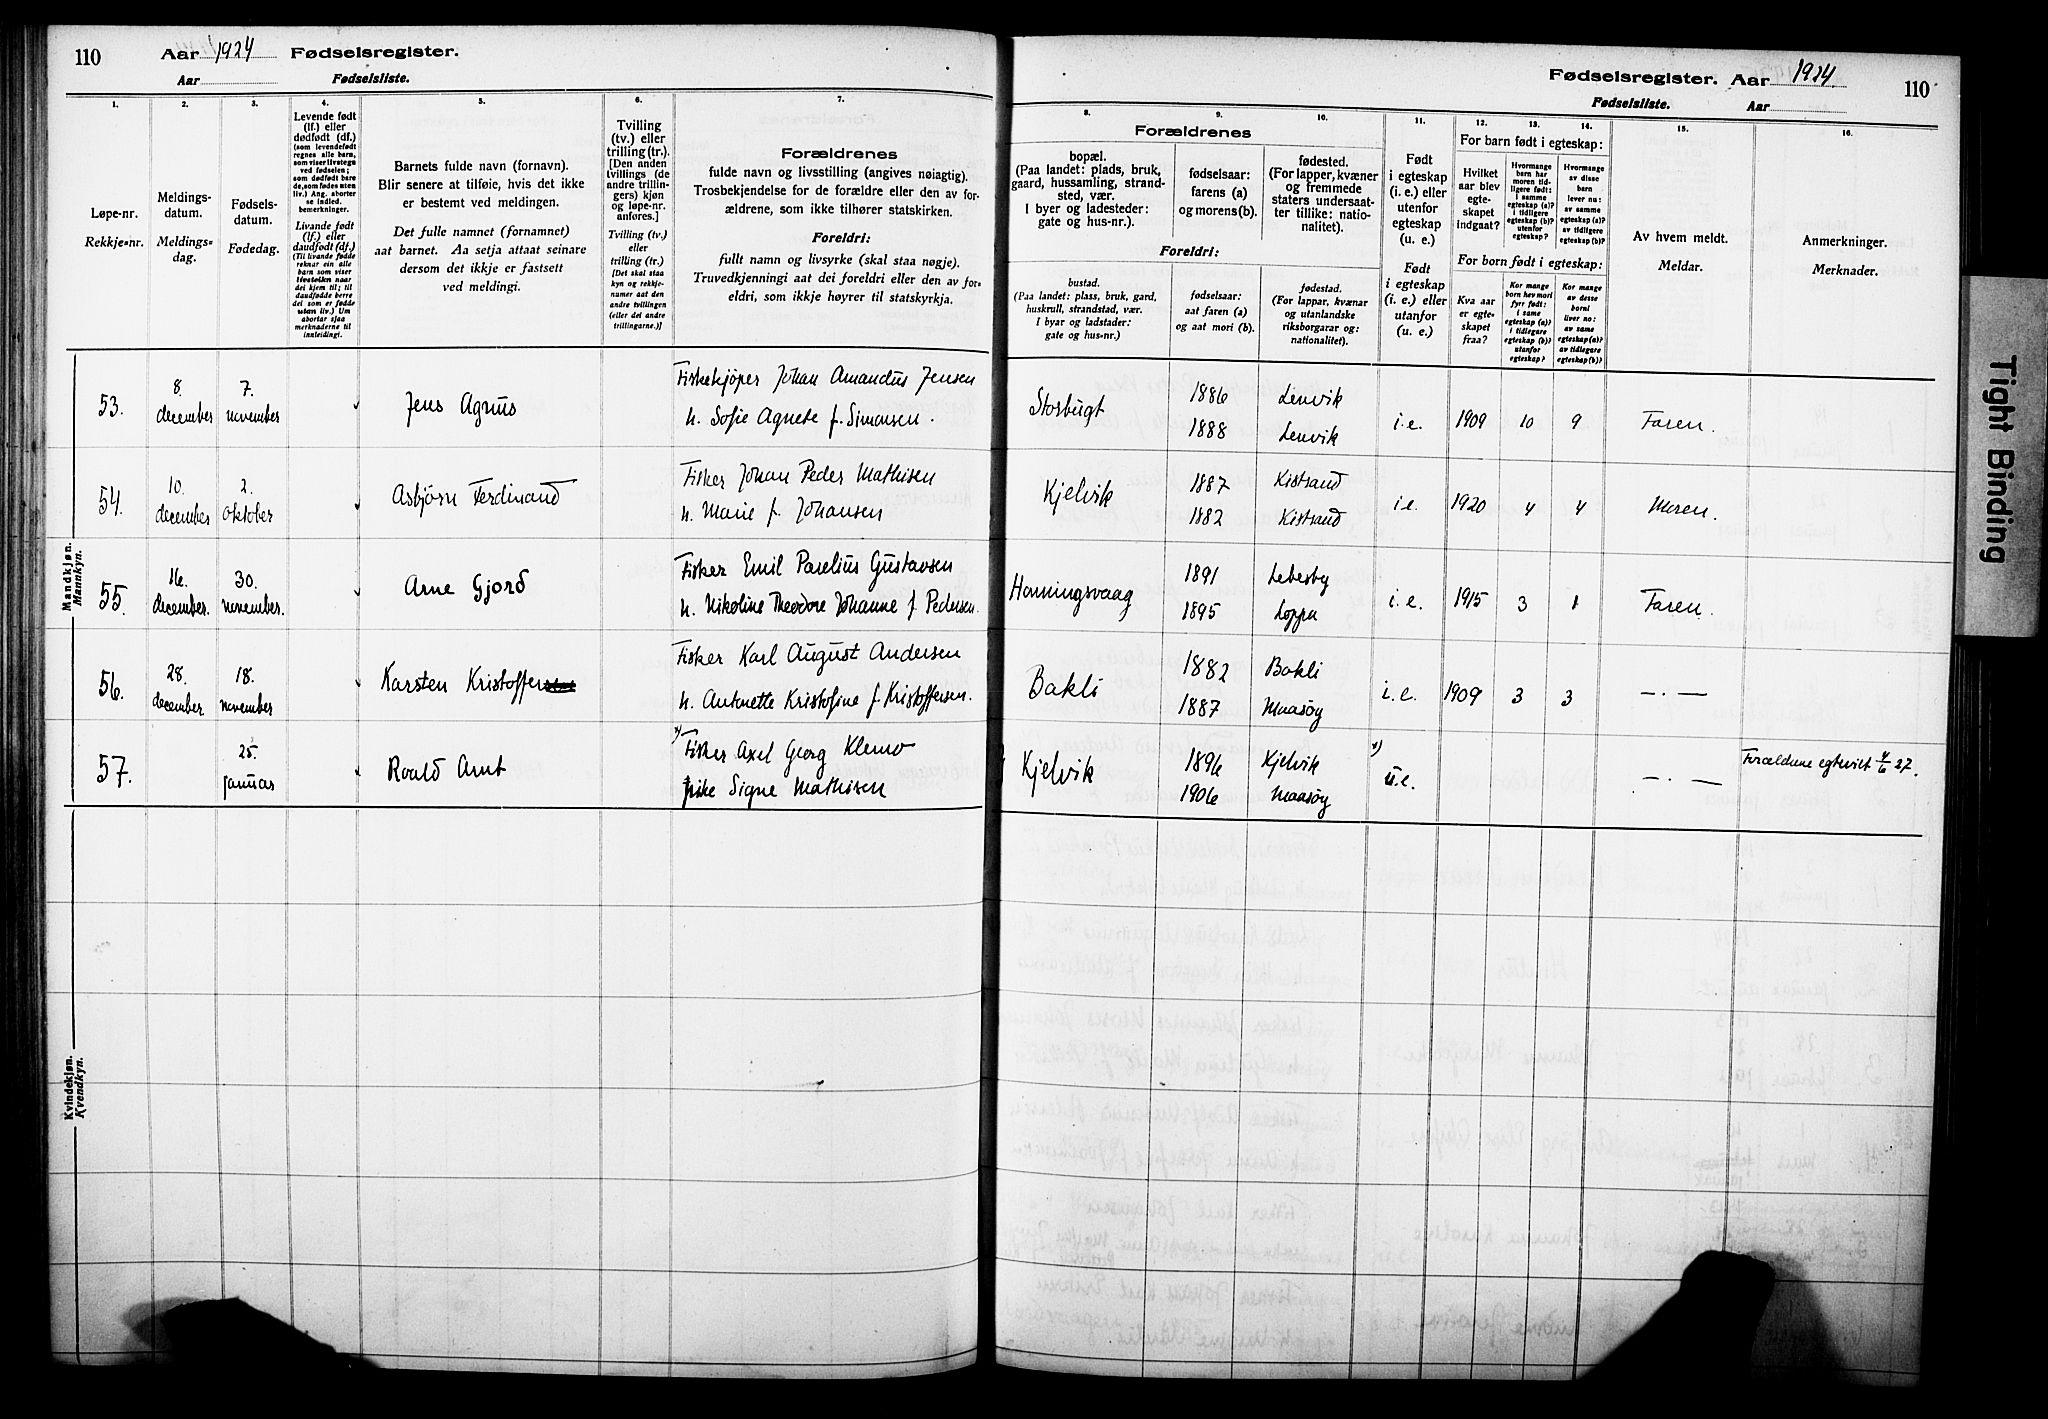 110 Aar 1924 Fødselsregister.
Aar Fødselsliste.
Fødselsregister. Aar 1924. 110
Fødselsliste. Aar
1. 2. 3. 4. 5. 6. 7.
Løpe-nr.
Rekkje-nr.
Meldings-
datum.
Meldings-
dag.
Fødsels-
datum.
Fødedag.
Levende født
(lf.) eller
dødfødt (df.)
(som levendefødt
regnes alle barn,
som viser livstegn
ved fødselen;
som dødfødt bare
de, som fødes uten
liv.) Ang. aborter
se indled.
bemerkninger.
Livande født
(lf.) eller
daudfødt (df.)
(Til livande fødde
reknar ein alle
barn som viser
livsteikn naar
dei kjem til; til
daudfødde berre
dei som er fødde
utan liv.) Um
abortar sjaa
merknaderne til
innleiding.
Barnets fulde navn (fornavn).
Blir senere at tilføie, hvis det ikke
er bestemt ved meldingen.
Det fulle namnet (fornamnet)
aat barnet. Aa setja attaat seinare
dersom det ikkje er fastsett
ved meldingi.
Tvilling
(tv.) eller
trilling (tr.).
[Den anden
tvillings (de
andre trillin-
gers) kjøn
og løpe-nr.
anføres.]
Tvilling (tv.)
eller
trilling (tr.)
[Det skal staa
kyn og rekkje-
numer aat den
andre tvillingen
(eller dei andre
trillingarne.)]
Forældrenes
fulde navn og livsstilling (angives nøiagtig).
Trosbekjendelse for de forældre eller den av for-
ældrene, som ikke tilhører statskirken.
Foreldri:
fullt namn og livsyrke (skal staa nøgje).
Truvedkjenningi aat dei foreldri eller den av for-
eldri, som ikkje høyrer til statskyrkja.
8. 9. 10. 11. 12. 13. 14. 15. 16.
Forældrenes
bopæl.
(Paa landet: plads, bruk,
gaard, hussamling, strand-
sted, vær.
I byer og ladesteder:
gate og hus-nr.).
fødselsaar:
farens (a)
og morens (b).
fødested.
(For lapper, kvæner
og fremmede
staters undersaat-
ter tillike: natio-
nalitet).
Foreldri:
bustad.
(Paa landet: plass, bruk, gard,
huskrull, strandstad, vær.
I byar og ladstader:
gate og hus-nr.)
fødselsaar:
aat faren (a)
og aat mori (b).
fødestad.
(For lappar, kvænar
og utanlandske
riksborgarar og:
nationalitet).
Født
i egteskap
(i. e.) eller
utenfor
egteskap
(u. e.)
Født
i egteskap
(i. e.) eller
utanfor
(u. e.)
For barn født i egteskap:
Hvilket
aar blev
egte-
skapet
indgaat?
Hvormange
barn har
moren tid-
ligere født:
i samme
egteskap (a)?
i tidligere
egteskap (b)?
utenfor
egteskap?
Hvormange
av disse
barn
lever nu:
av samme
egteskap (a)?
av tidligere
egteskap (b)?
For born født i egteskap:
Kva aar
er egte-
skapet
fraa?
Kor mange
born hev mori
fyrr født:
i same
egteskap (a)?
i tidlegare
egteskap (b)?
utanfor
egteskap?
Kor mange
av desse
borni
liver no:
av same
egteskap (a)?
av tidlegare
egteskap (b)?
Av hvem meldt.
Meldar.
Anmerkninger.
Merknader.
Mandkjøn.
Mannkyn.
53. 8. december 7. november Jens Agnus Fiskekjøper Johan Amandus Jensen
h. Sofie Agnete f. Simonsen. Storbugt 1886 Lenvik
1888 Lenvik i.e. 1909 10 9 Faren.
54. 10. december 2. oktober Asbjørn Ferdinand Fisker Johan Peder Mathisen
h. Marie f. Johansen Kjelvik 1887 Kistrand
1882 Kistrand i.e. 1920 4 4 Moren.
55. 16. december. 30. november. Arne Gjord Fisker Emil Paulius Gustavsen
h. Nikoline Theodore Johanne f. Pedersen. Honningsvaag 1891 Lebesby
1895 Loppa i.e. 1915 3 1 Faren.
56. 28. december 18. november Karsten Kristoffer Fisker Karl August Andersen
h. Antonette Kristofine f. Kristoffersen. Bakli 1882 Bakli
1887 Maasøy i.e. 1909 3 3 —.—
57. 25. januar Roald Arnt x) Fisker Axel Georg Klemo
pike Signe Mathisen Kjelvik 1896 Kjelvik
1906 Maasøy x) u.e. —.— Forældrene egteviet 4/6 27.
Kvindekjøn.
Kvendkyn.
Tight Binding